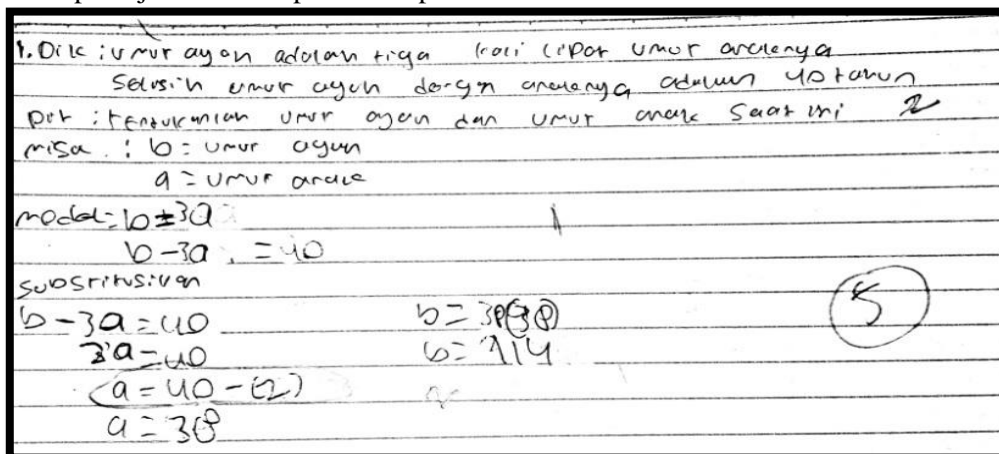 1. Dik : umur ayah adalah tiga kali lipat umur anaknya
Selisih umur ayah dengan anaknya adalah 40 tahun
Dit : tentukanlah umur ayah dan umur anak saat ini 2
misa : b = umur ayah
a = umur anak
model = b = 3a 1
b - 3a = 40
substitusikan
b - 3a = 40 b = 38(38) 5
3a = 40 b = 114
a = 40 - (2)
a = 38